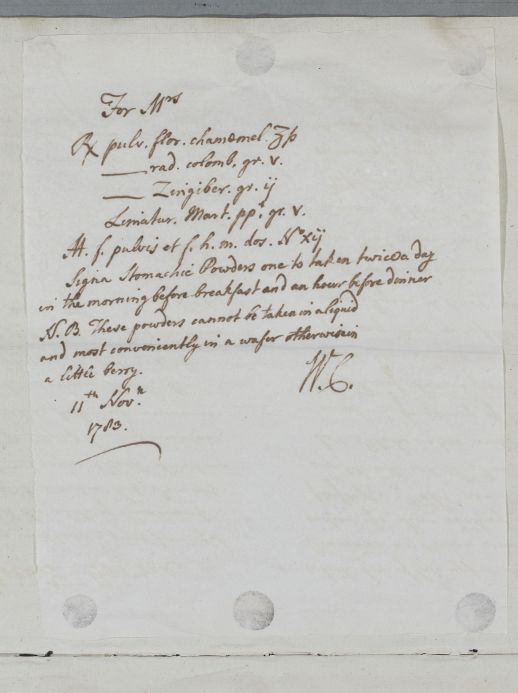 For Mrs
℞ pulv. flor. chamæmel. ʒß
— rad. colomb. gr. v.
— Zingiber. gr. ij
Limatur. Mart. ppt. gr. v.
M. f. pulvis et f. h. m. dos. No. xij
Signa Stomachic Powders one to taken twice a day
in the morning before breakfast and an hour before dinner
N.B. These powders cannot be taken in a liquid
and most conveniently in a wafer otherwise in
a little berry.
W.C.
11th Novr.
1783.